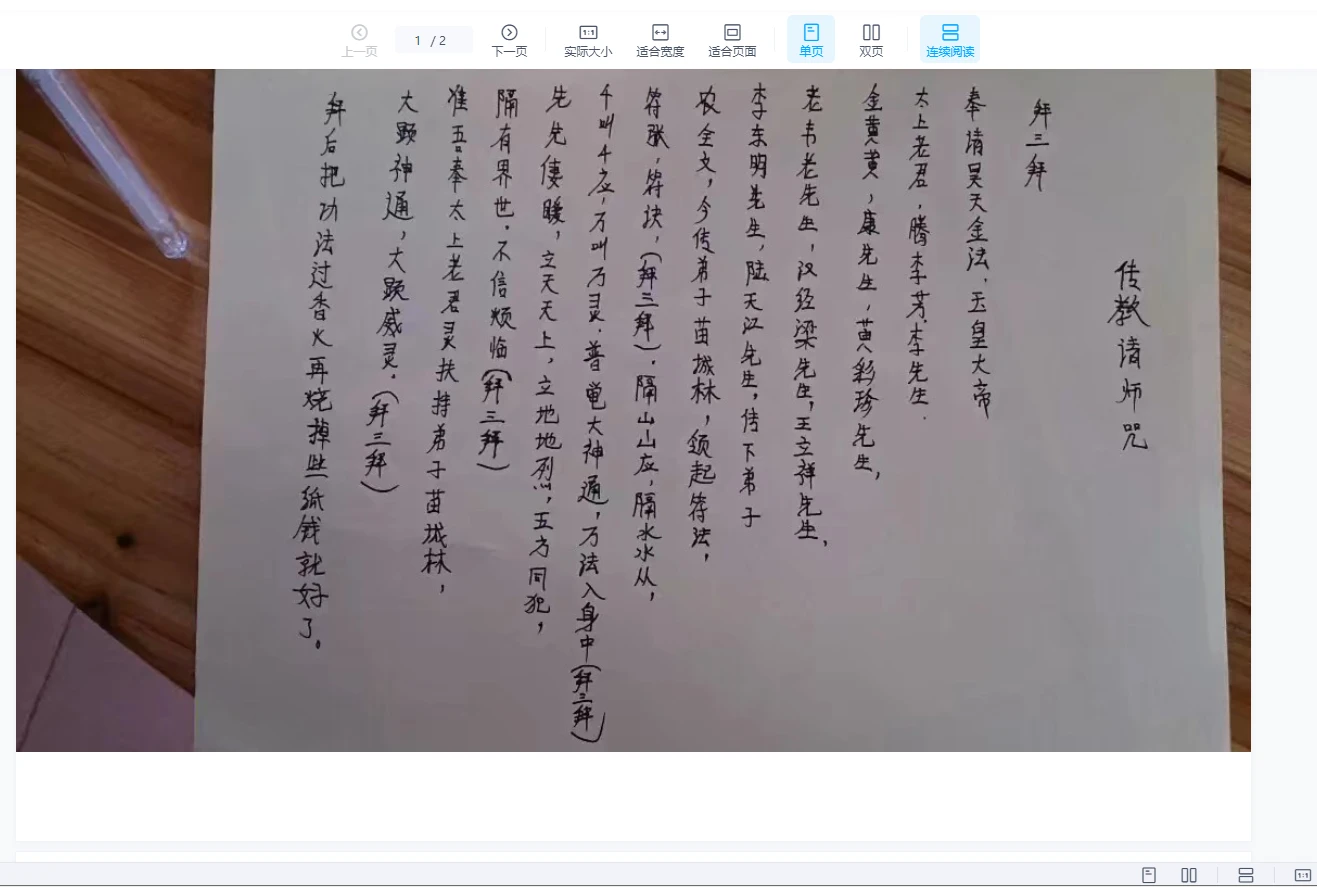 上一页
1 / 2
下一页
1:1
实际大小
适合宽度
适合页面
单页
双页
连续阅读
传教诸师咒
拜三拜
奉请昊天金法、玉皇大帝
太上老君，腾李芳、李先生.
金黄黄，康先生，黄彩珍先生,
老韦老先生，汉经梁先生，王立祥先生,
李东明先生，陆天江先生，传下弟子
农全文，今传弟子苗城林，领起符法，
符张，符诀，(拜三拜)。隔山山应，隔水水从，
千叫千应，万叫万灵.普奄大神通，万法入身中(拜三拜)
先先偻暖，立天天上，立地地烈，五方同犯，
隔有界世.不信烦临(拜三拜)
准吾奉太上老君灵扶持弟子苗城林，
大显神通，大显威灵.(拜三拜)
拜后把功法过香火再烧掉些纸钱就好了。
1:1